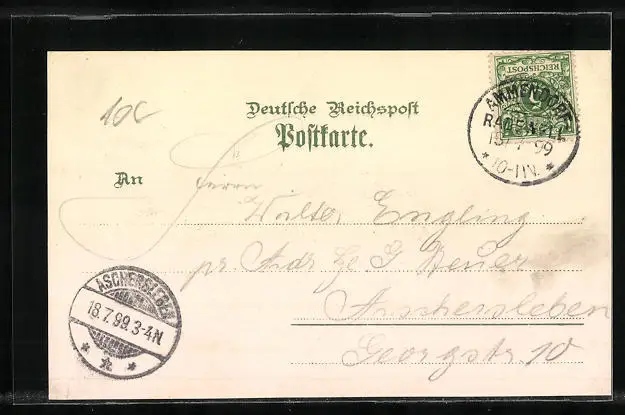 10C
REICHSPOST
Deutsche Reichspost
Postkarte.
AMMENDORF
RADEWELL
18/7 99
* 10-11V. *
An Herrn
Walter Engling
pr. Adr. Hr. G
Aschersleben
Georgstr. 10
ASCHERSLEBEN
18.7.99.3-4N